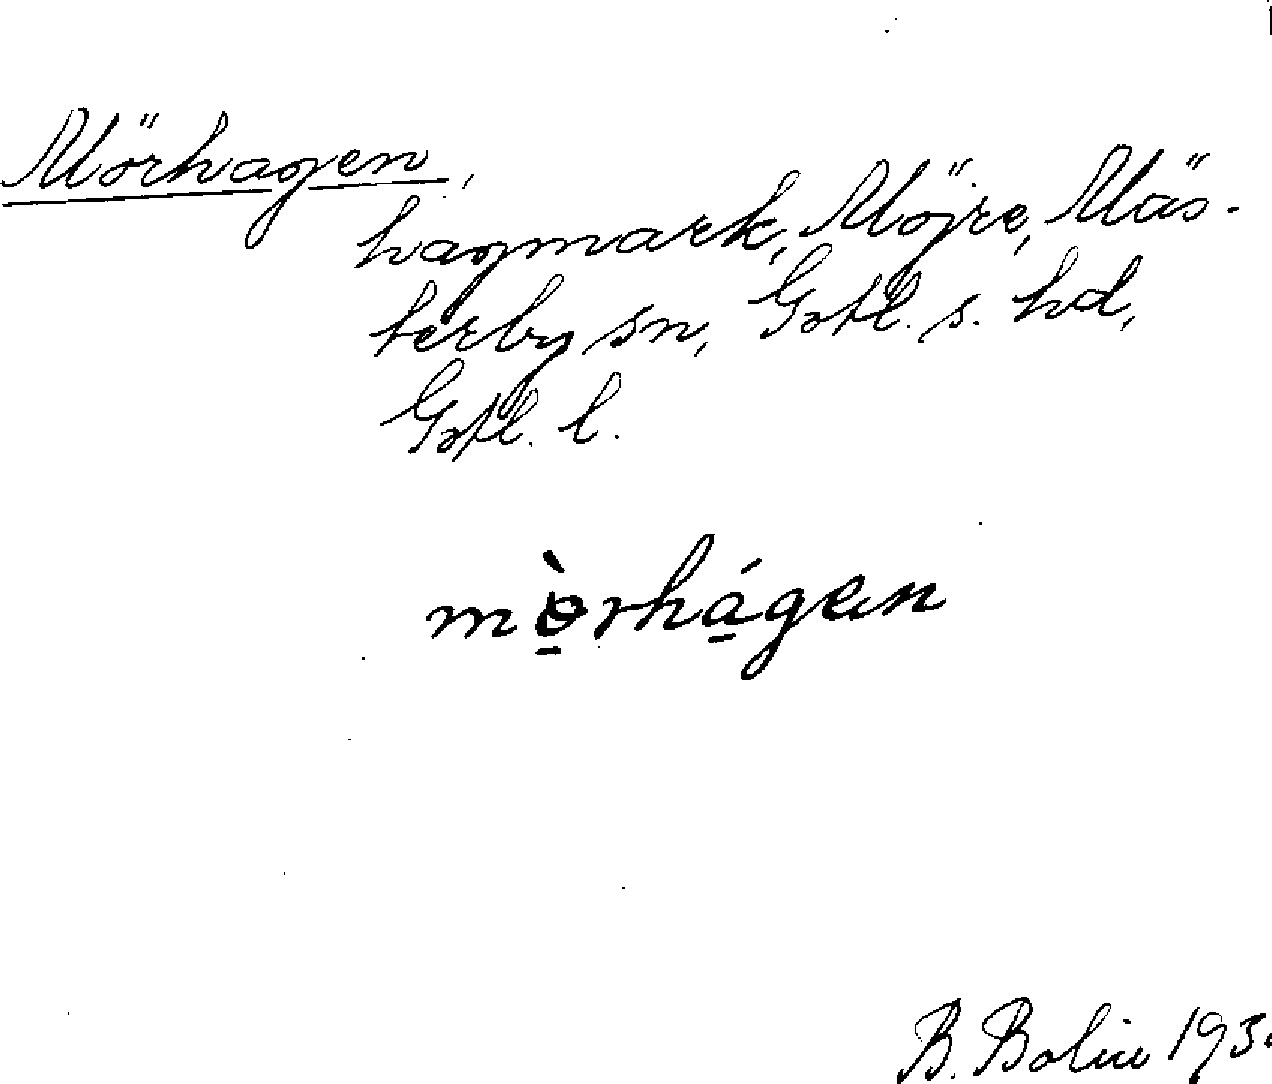 Mörhagen,
hagmark, Möjre, Mäs-
terby sn, Gotl. s. hd,
Gotl. l.
mörhágen
B. Bolin 193